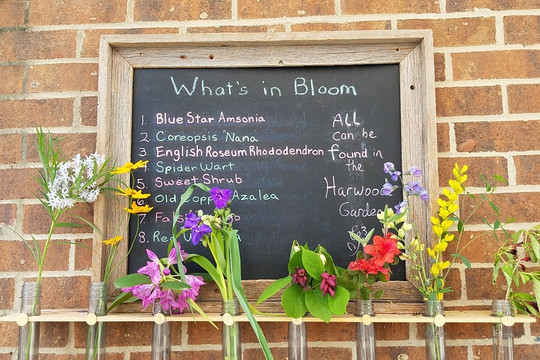 What's in Bloom
1. Blue Star Amsonia
2. Coreopsis 'Nana
3. English Roseum Rhododendron
4. Spider Wart
5. Sweet Shrub
6. Old Copp Azalea
7. Fals
8. Re
All
can be
found in
the
Harwood
Garden